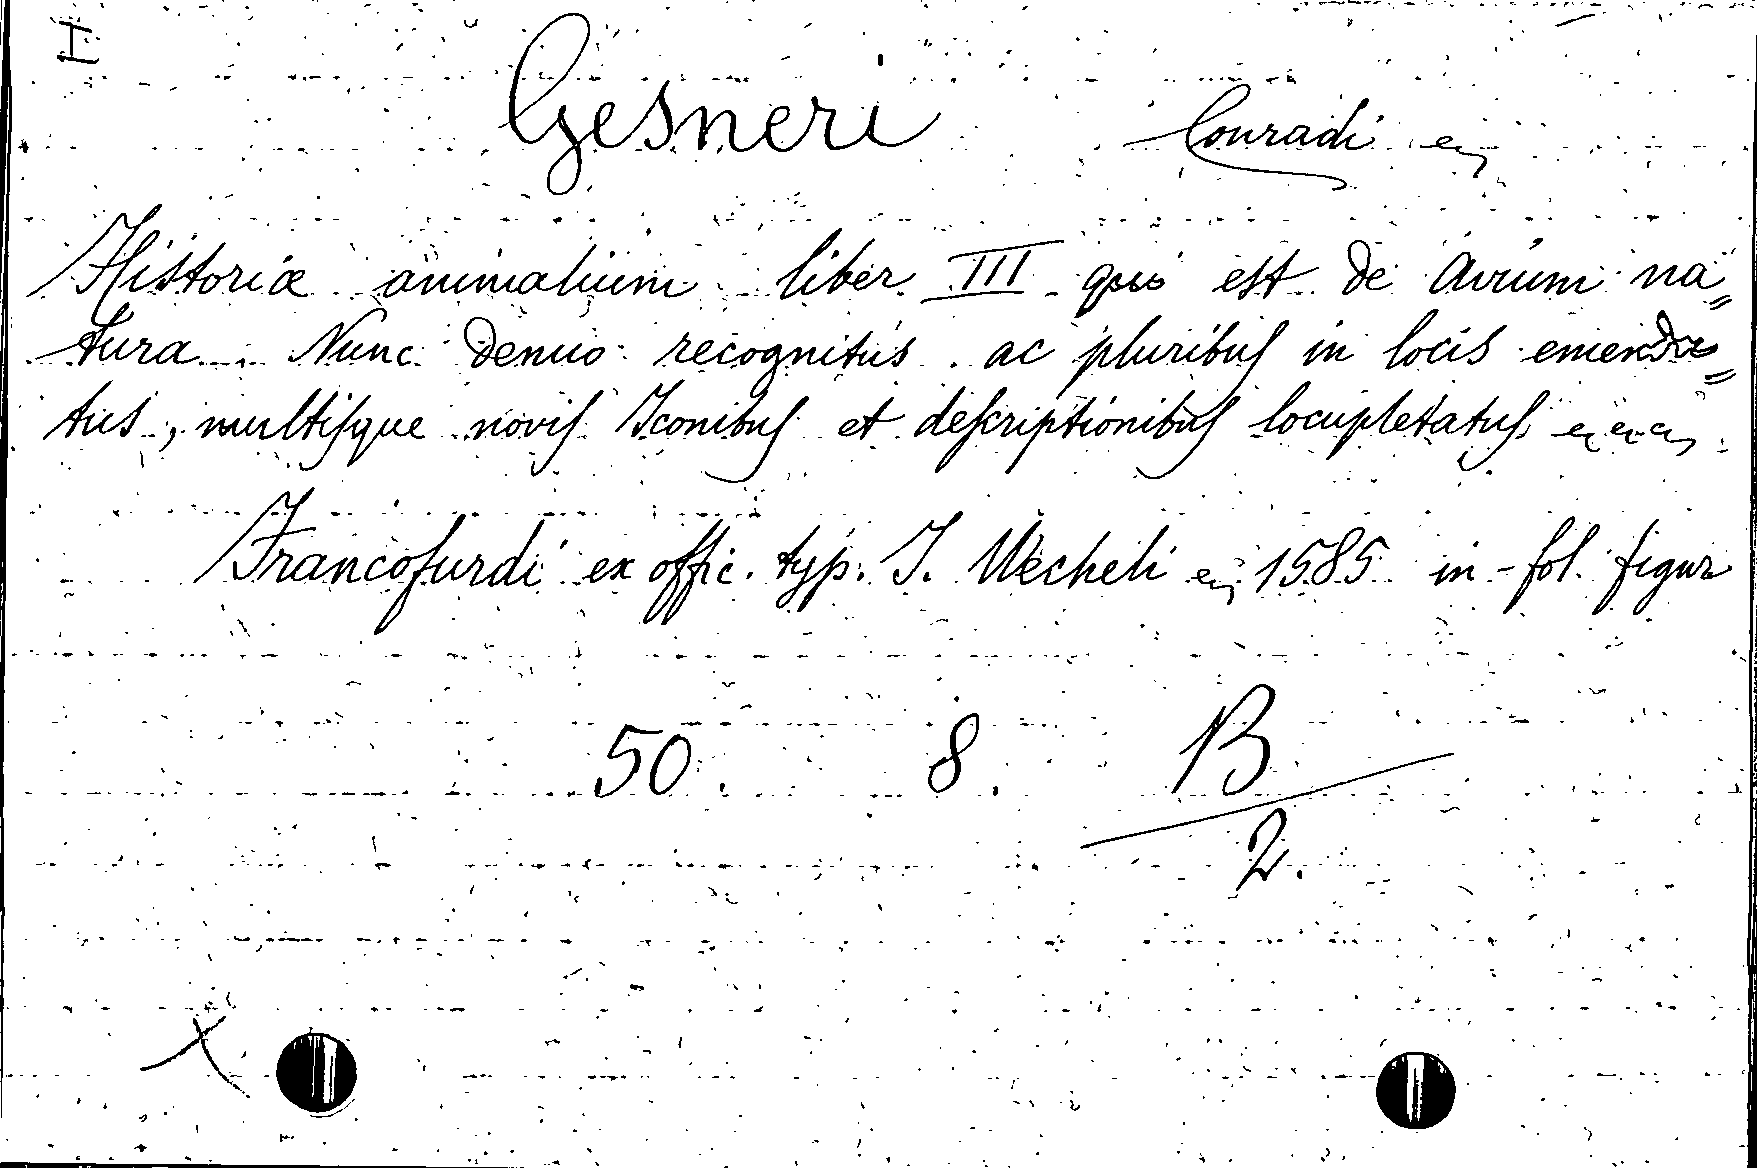 I
Gesneri Conradi
Historiæ animalium liber III qui est de avium na„
tura. Nunc denuo recognitus ac pluribuſ in locis emenda„
tus, multiſque noviſ Iconibuſ et deſcriptionibuſ locupletatuſ,
Francofurdi ex offic. typ. J. Wecheli 1585 in-fol. figur
50. 8. B
2.
X